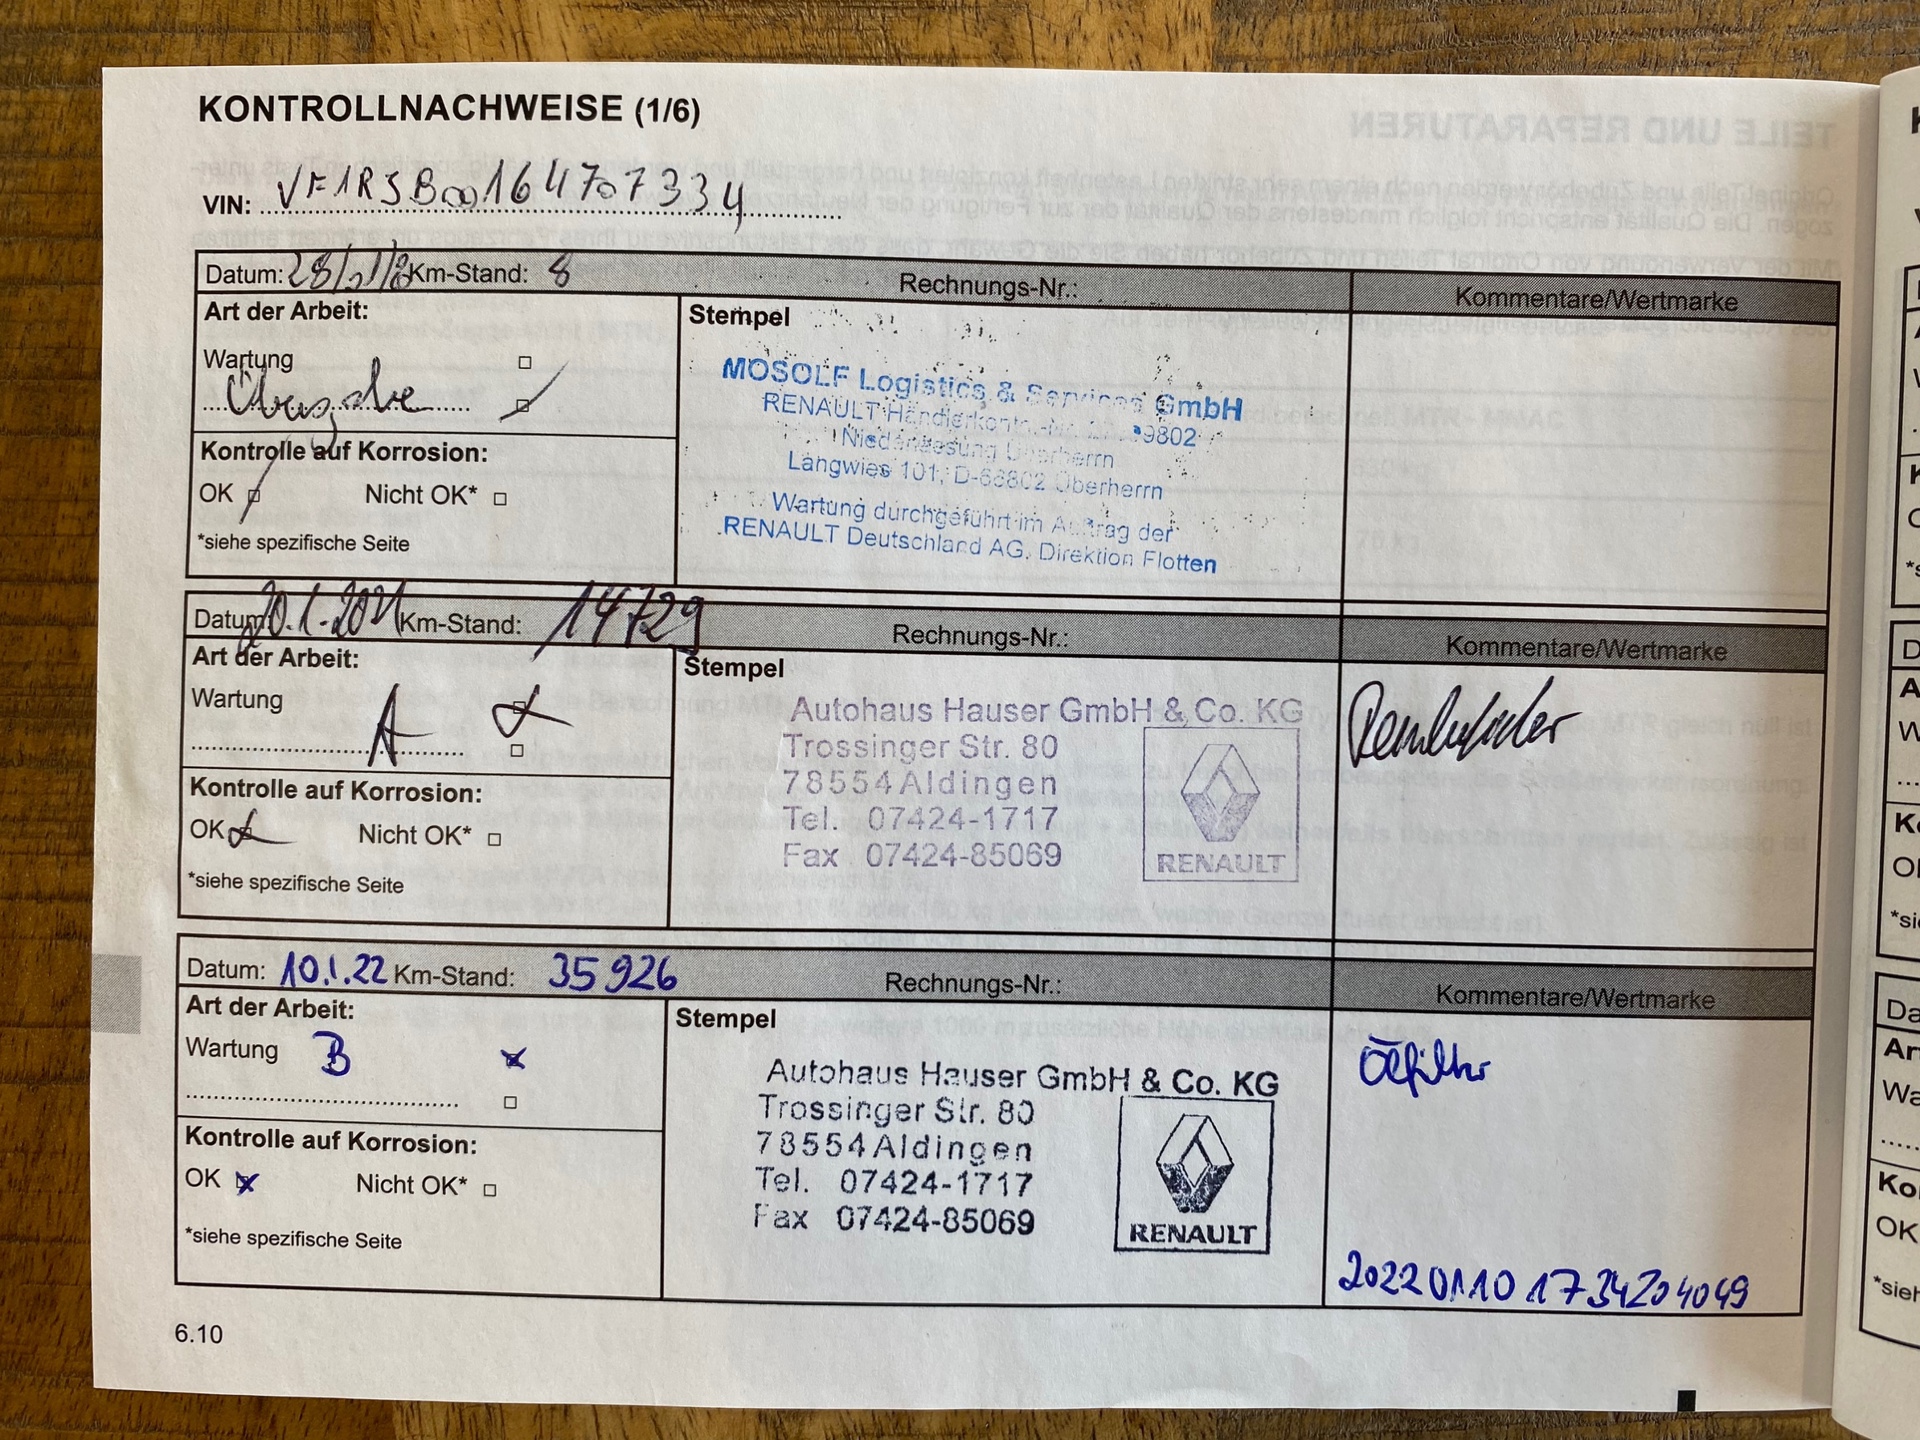 KONTROLLNACHWEISE (1/6)
VIN: VF1RJB00164707334
Datum: Km-Stand: 8 Rechnungs-Nr.: Kommentare/Wertmarke
Art der Arbeit:
Wartung
Übergabe
Kontrolle auf Korrosion:
OK Nicht OK*
*siehe spezifische Seite
Stempel
MOSOLF Logistics & Services GmbH
RENAULT Händlerkonto-Nr. 9802
Niederlassung Überherrn
Langwies 101, D-66802 Überherrn
Wartung durchgeführt im Auftrag der
RENAULT Deutschland AG. Direktion Flotten
Datum: 20.1.2021 Km-Stand: 14729 Rechnungs-Nr.: Kommentare/Wertmarke
Art der Arbeit:
Wartung A
Kontrolle auf Korrosion:
OK Nicht OK*
*siehe spezifische Seite
Stempel
Autohaus Hauser GmbH & Co. KG
Trossinger Str. 80
78554 Aldingen
Tel. 07424-1717
Fax 07424-85069
RENAULT
Datum: 10.1.22 Km-Stand: 35926 Rechnungs-Nr.: Kommentare/Wertmarke
Art der Arbeit:
Wartung B
Kontrolle auf Korrosion:
OK Nicht OK*
*siehe spezifische Seite
Stempel
Autohaus Hauser GmbH & Co. KG
Trossinger Str. 80
78554 Aldingen
Tel. 07424-1717
Fax 07424-85069
RENAULT
Ölfilter
20220110 1734204049
6.10